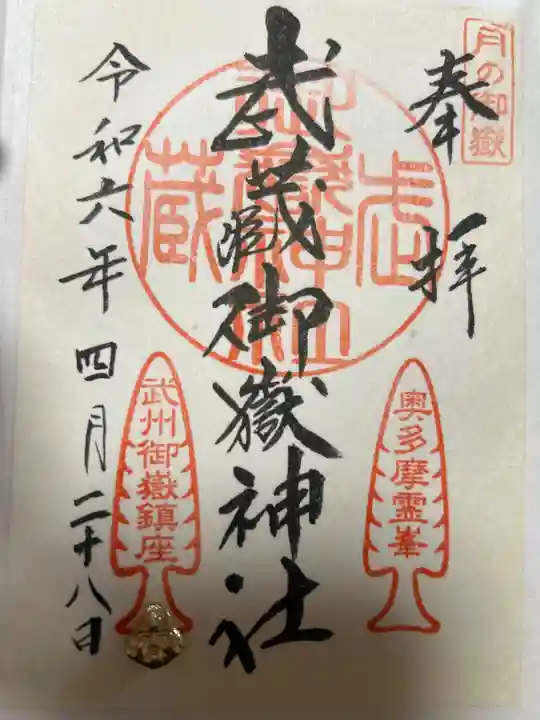 月の御嶽
奉拝
奥多摩霊峯
武蔵御嶽神社
武蔵御嶽神社
武州御嶽鎮座
令和六年四月二十八日